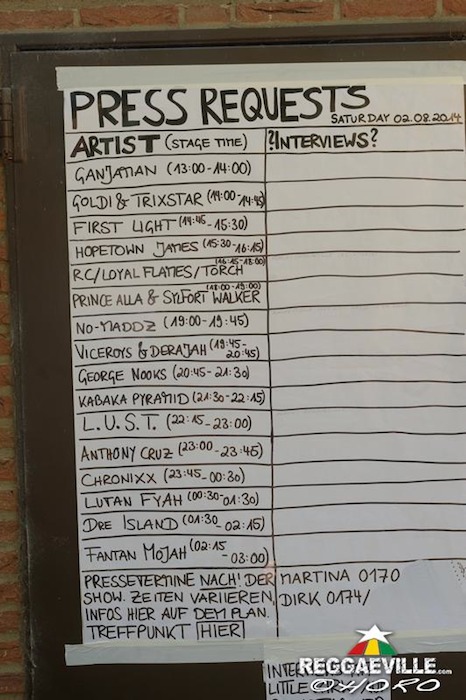 PRESS REQUESTS
SATURDAY 02.08.2014
ARTIST (STAGE TIME) ?INTERVIEWS?
GANJATIAN (13:00-14:00)
GOLDI & TRIXSTAR (14:00-14:45)
FIRST LIGHT (14:45-15:30)
HOPETOWN JAMES (15:30-16:15)
RC/LOYAL FLAMES/TORCH (16:15-18:00)
PRINCE ALLA & SYLFORT WALKER (18:00-19:00)
NO-MADDZ (19:00-19:45)
VICEROYS & DERAJAH (19:45-20:45)
GEORGE NOOKS (20:45-21:30)
KABAKA PYRAMID (21:30-22:15)
L.U.S.T. (22:15-23:00)
ANTHONY CRUZ (23:00-23:45)
CHRONIXX (23:45-00:30)
LUTAN FYAH (00:30-01:30)
DRE ISLAND (01:30-02:15)
FANTAN MOJAH (02:15-03:00)
PRESSETERMINE NACH! DER
SHOW. ZEITEN VARIIEREN,
INFOS HIER AUF DEM PLAN.
TREFFPUNKT HIER
MARTINA 0170
DIRK 0174/
LITTLE
REGGAEVILLE.com